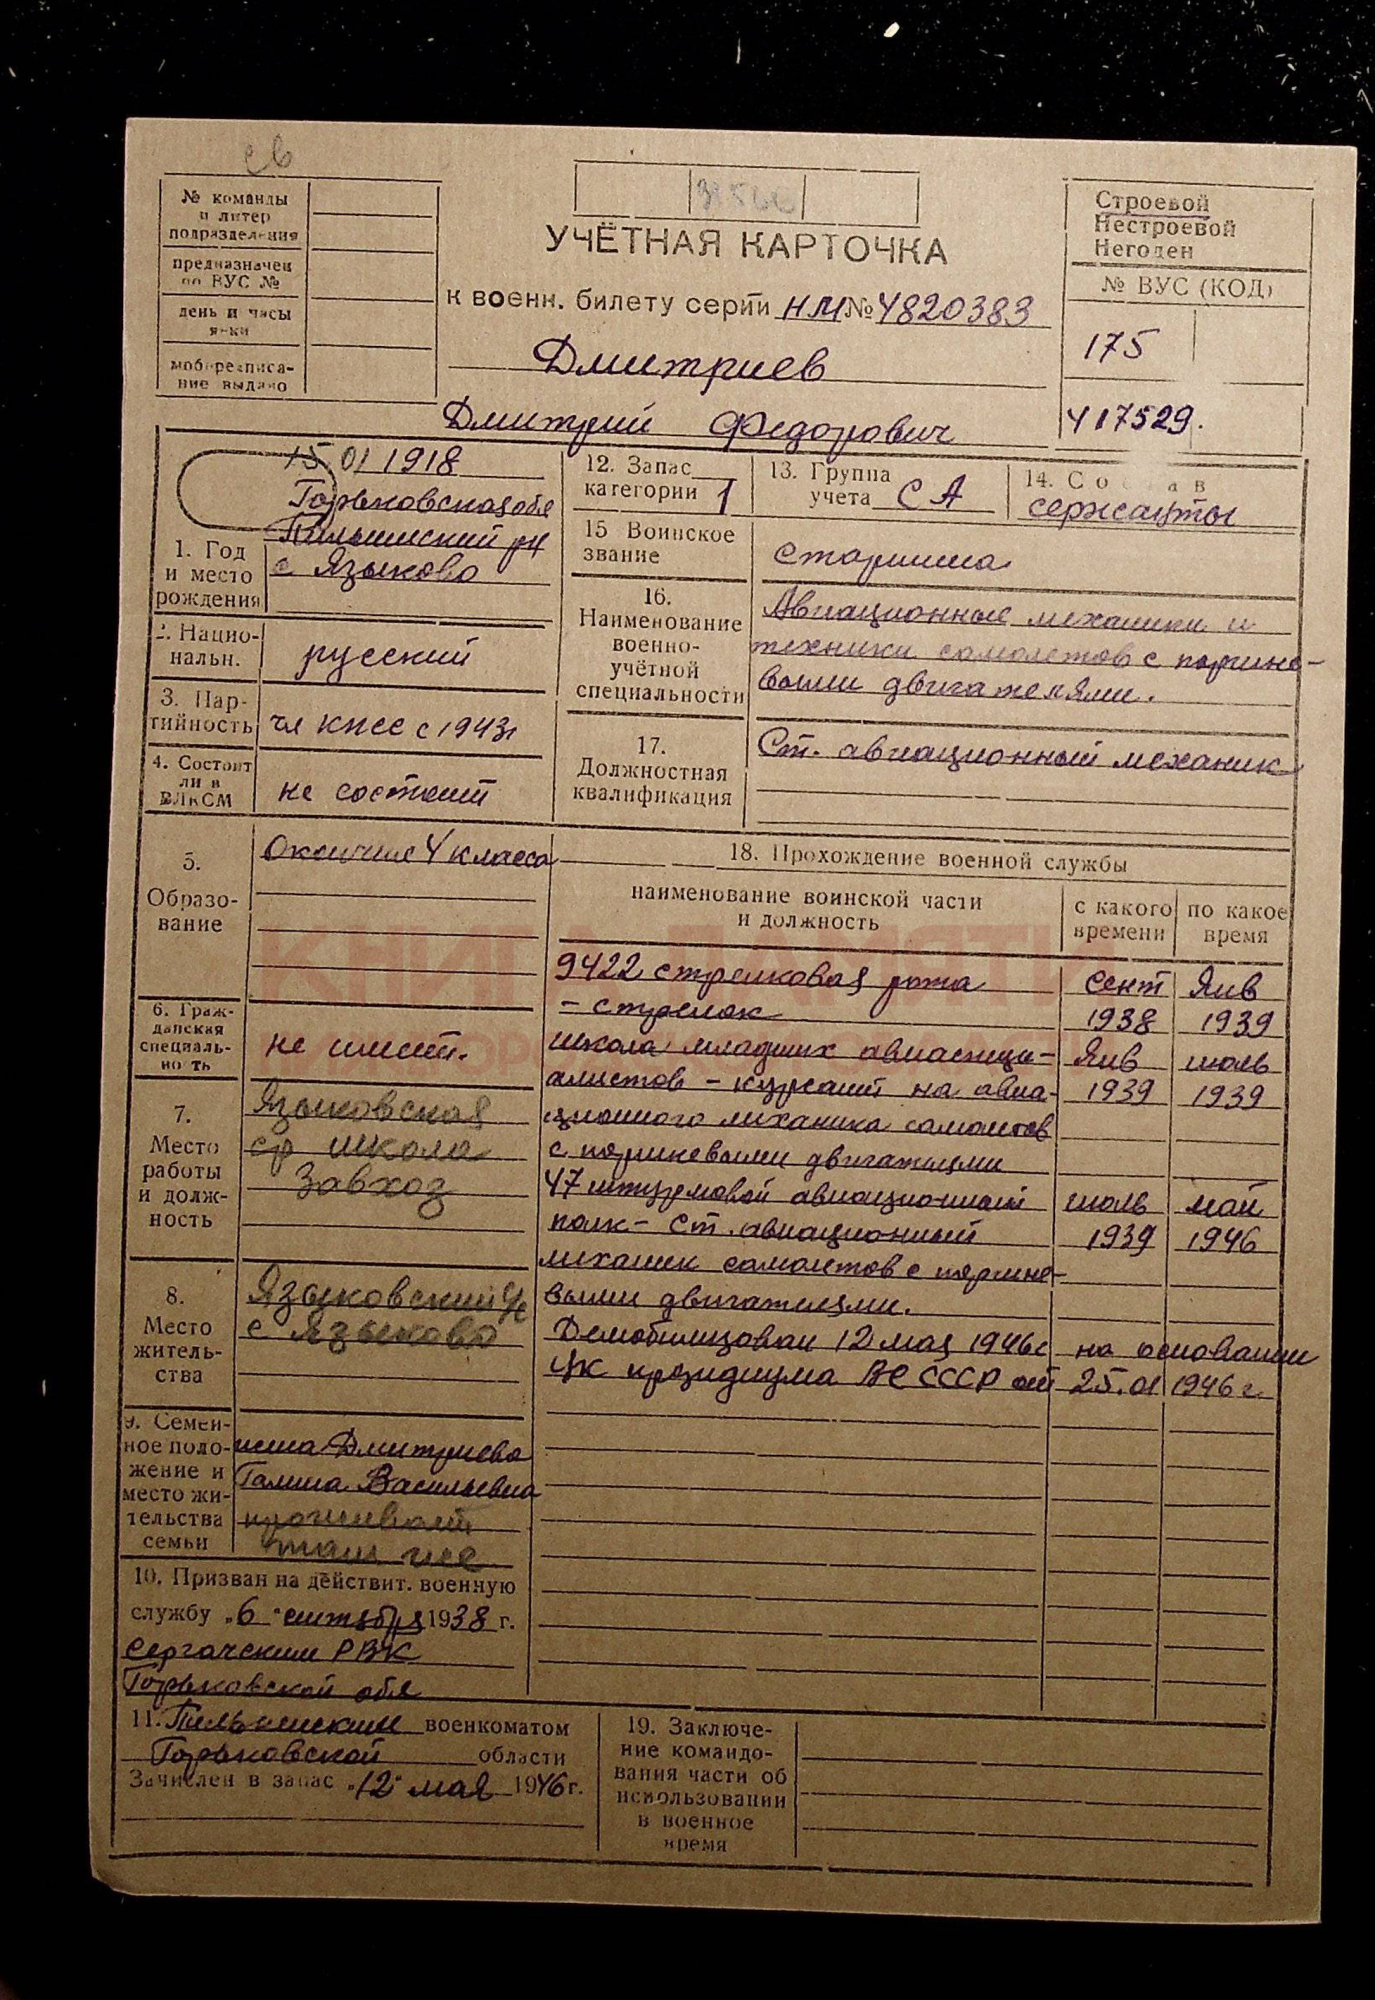 св
№ команды
и литер
подразделения
предназначен
по ВУС №
день и часы
явки
мобпредписа-
ние выдано
УЧЁТНАЯ КАРТОЧКА
к военн. билету серии НМ № 4820383
Дмитриев
Дмитрий Федорович
Строевой
Нестроевой
Негоден
№ ВУС (КОД)
175
417529.
15 01 1918
Горьковская обл
Пильнинский рн
с Языково
1. Год
и место
рождения
2. Нацио-
нальн.
русский
3. Пар-
тийность
чл КПСС с 1943г
4. Состоит
ли в
ВЛКСМ
не состоит
12. Запас
категории 1
13. Группа
учета СА
14. Состав
сержанты
15 Воинское
звание
старшина
16.
Наименование
военно-
учётной
специальности
Авиационные механики и
техники самолетов с поршне-
выми двигателями.
17.
Должностная
квалификация
Ст. авиационный механик
5.
Образо-
вание
Окончил 4 класса
6. Граж-
данская
специаль-
ность
не имеет.
7.
Место
работы
и долж-
ность
Языковская
ср школа
Завхоз
8.
Место
житель-
ства
Языковский с/с
с Языково
9. Семей-
ное поло-
жение и
место жи-
тельства
семьи
жена Дмитриева
Галина Васильевна
проживает
там же
10. Призван на действит. военную
службу „6" сентября 1938 г.
Сергачским РВК
Горьковской обл
11. Пильнинским военкоматом
Горьковской области
Зачислен в запас „12" мая 1946 г.
18. Прохождение военной службы
наименование воинской части
и должность
с какого
времени
по какое
время
9422 стрелковая рота сент Янв
- стрелок 1938 1939
школа младших авиаспеци- Янв июль
алистов - курсант на авиа- 1939 1939
ционного механика самолетов
с поршневыми двигателями
47 штурмовой авиационный июль май
полк - ст. авиационный 1939 1946
механик самолетов с поршне-
выми двигателями.
Демобилизован 12 мая 1946г на основании
Ук президиума ВС СССР от 25.01 1946 г.
19. Заключе-
ние командо-
вания части об
использовании
в военное
время
КНИГА ПАМЯТИ